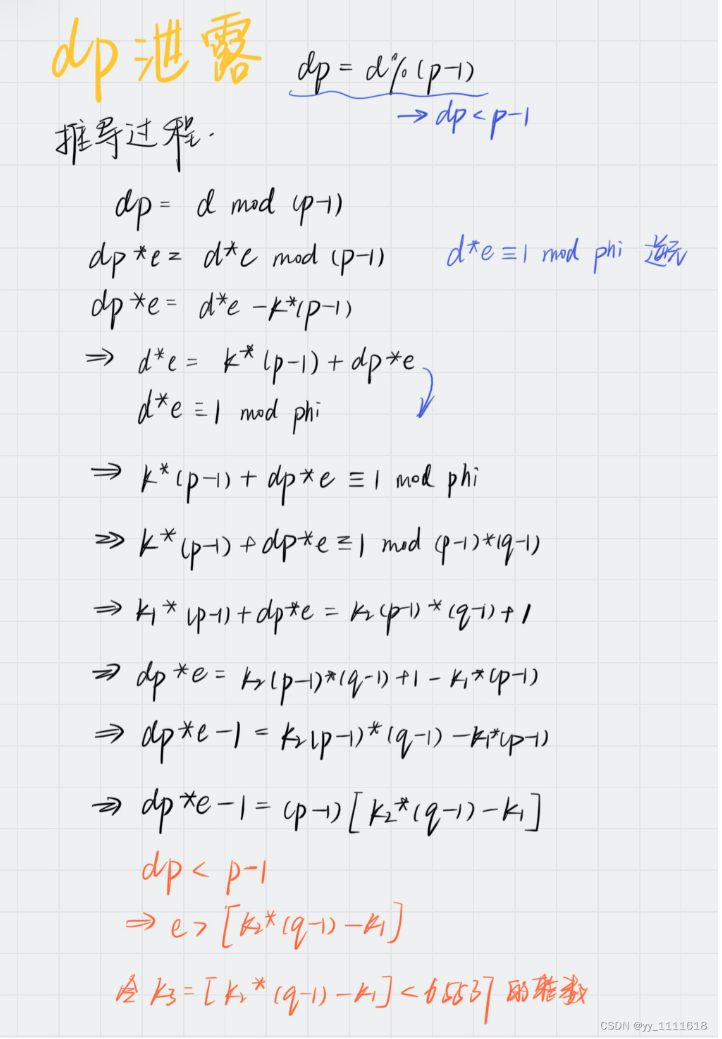 dp泄露
dp = d%(p-1)
→ dp < p-1
推导过程.
dp = d mod (p-1)
dp*e = d*e mod (p-1)
d*e ≡ 1 mod phi 逆元
dp*e = d*e - k*(p-1)
⇒ d*e = k*(p-1) + dp*e
d*e ≡ 1 mod phi
⇒ k*(p-1) + dp*e ≡ 1 mod phi
⇒ k*(p-1) + dp*e ≡ 1 mod (p-1)*(q-1)
⇒ k1*(p-1) + dp*e = k2(p-1)*(q-1) + 1
⇒ dp*e = k2(p-1)*(q-1) + 1 - k1*(p-1)
⇒ dp*e - 1 = k2(p-1)*(q-1) - k1*(p-1)
⇒ dp*e - 1 = (p-1)[k2*(q-1) - k1]
dp < p-1
⇒ e > [k2*(q-1) - k1]
令 k3 = [k2*(q-1) - k1] < 65537 的整数
CSDN @yy_1111618